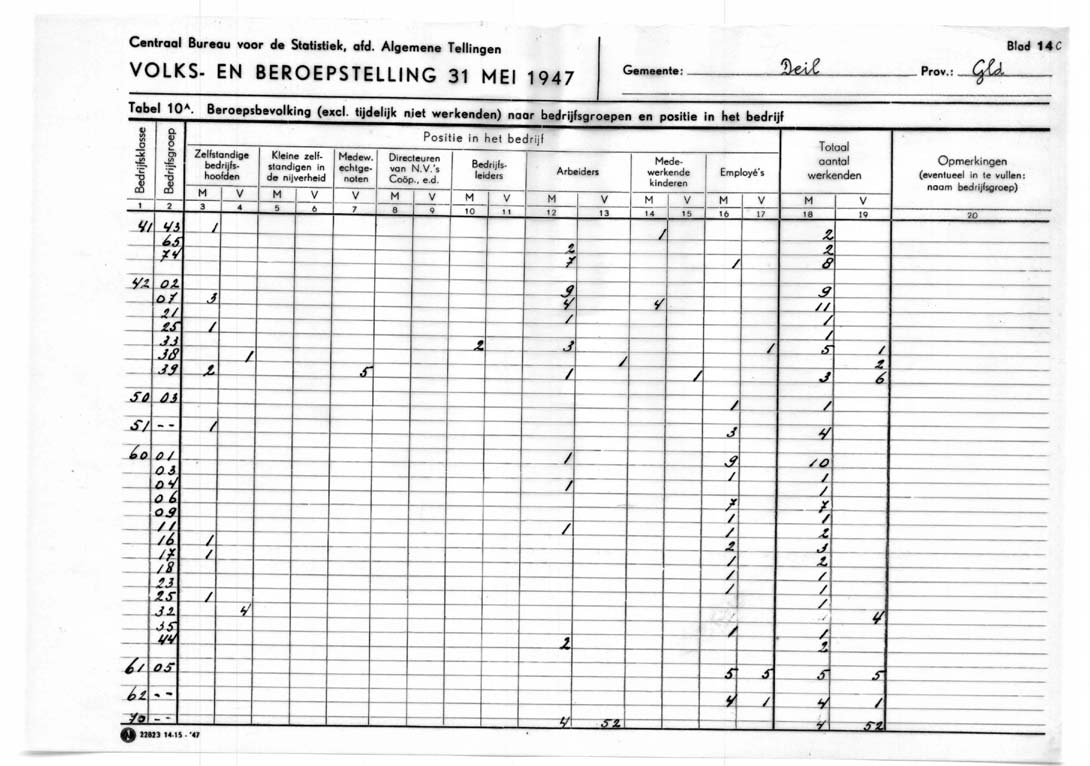 Centraal Bureau voor de Statistiek, afd. Algemene Tellingen
Blad 14C
VOLKS- EN BEROEPSTELLING 31 MEI 1947
Gemeente: Deil Prov.: Gld
Tabel 10A. Beroepsbevolking (excl. tijdelijk niet werkenden) naar bedrijfsgroepen en positie in het bedrijf
Bedrijfsklasse
Bedrijfsgroep
Positie in het bedrijf
Zelfstandige bedrijfs-hoofden
Kleine zelf-standigen in de nijverheid
Medew. echtge-noten
Directeuren van N.V.'s Coöp., e.d.
Bedrijfs-leiders
Arbeiders
Mede-werkende kinderen
Employé's
Totaal aantal werkenden
Opmerkingen (eventueel in te vullen: naam bedrijfsgroep)
M V M V V M V M V M V M V M V M V
1 2 3 4 5 6 7 8 9 10 11 12 13 14 15 16 17 18 19 20
41 43 1 1 2
65 2 2
74 7 1 8
42 02 9 9
07 3 4 4 11
21 1 1
25 1 1
33 2 3 1 5 1
38 1 1 2
39 2 5 1 1 3 6
50 03 1 1
51 -- 1 3 4
60 01 1 9 10
03 1 1
04 1 1
06 7 7
09 1 1
11 1 1 2
16 1 2 3
17 1 1 2
18 1 1
23 1 1
25 1 1
32 4 4
35 1 1
44 2 2
61 05 5 5 5 5
62 -- 4 1 4 1
70 -- 4 52 4 52
22823 14-15 - '47